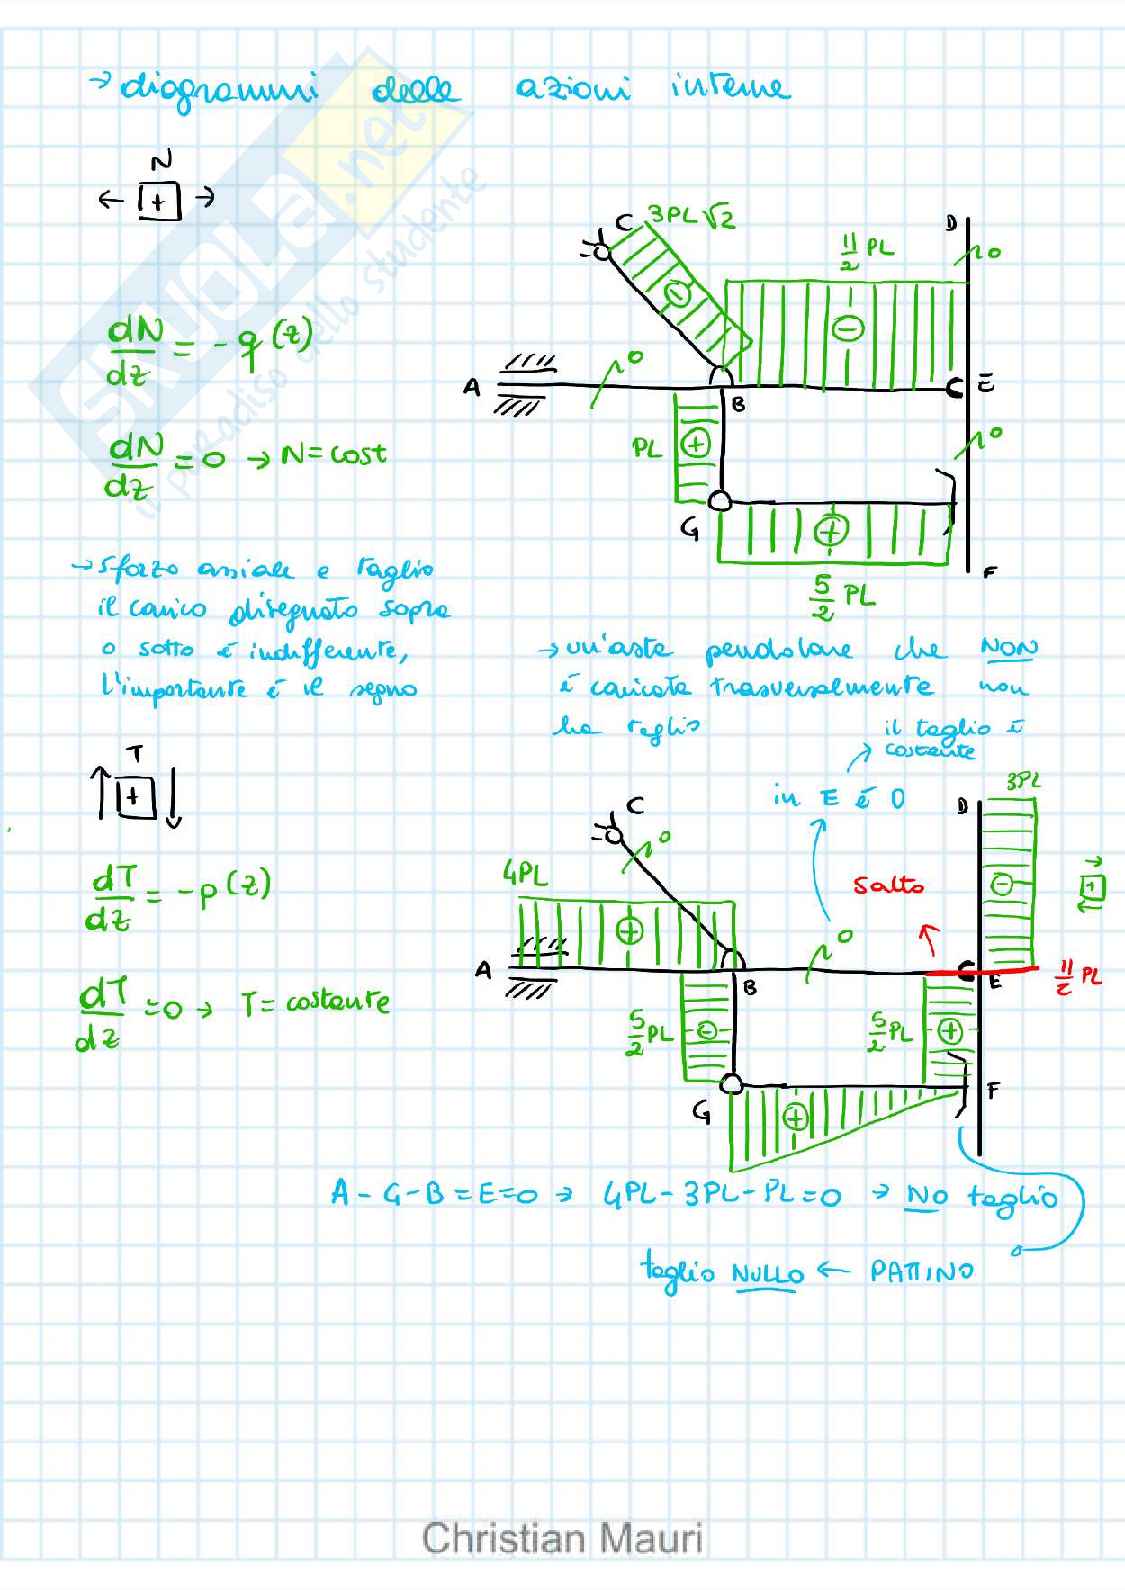 → diagrammi delle azioni interne
N
← + →
C 3PL√2
D
11/2 PL
0
dN/dz = -q(z)
0
A
B
E
dN/dz = 0 → N = cost
PL +
0
G
+
F
5/2 PL
→ sforzo assiale e taglio
il carico disegnato sopra
o sotto è indifferente,
l'importante è il segno
→ un'asta pendolare che NON
è caricata trasversalmente non
ha taglio
il taglio è
costante
T
+
in E è 0
C
D
3PL
0
4PL
salto
dT/dz = -p(z)
0
A
B
E
11/2 PL
dT/dz = 0 → T = costante
5/2 PL
5/2 PL +
G
F
+
A - G - B = E = 0 → 4PL - 3PL - PL = 0 → NO taglio
taglio NULLO ← PATTINO
Christian Mauri
SKUOLA.net
il paradiso dello studente